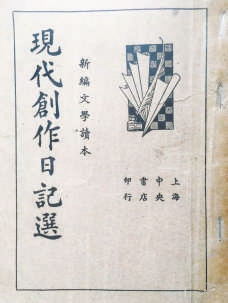 新編文學讀本
現代創作日記選
上海
中央
書店
印行